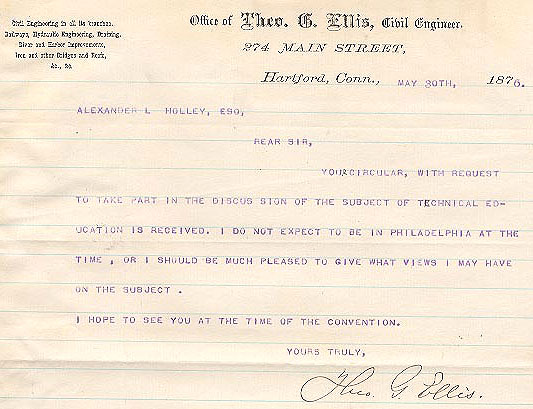 Civil Engineering in all its branches.
Railways, Hydraulic Engineering, Draining,
River and Harbor Improvements,
Iron and other Bridges and Roofs,
&c., &c.
Office of Theo. G. Ellis, Civil Engineer.
274 MAIN STREET,
Hartford, Conn., MAY 30TH, 1876.
ALEXANDER L HOLLEY, ESQ,
REAR SIR,
YOUR CIRCULAR, WITH REQUEST
TO TAKE PART IN THE DISCUS SION OF THE SUBJECT OF TECHNICAL ED-
UCATION IS RECEIVED. I DO NOT EXPECT TO BE IN PHILADELPHIA AT THE
TIME , OR I SHOULD BE MUCH PLEASED TO GIVE WHAT VIEWS I MAY HAVE
ON THE SUBJECT .
I HOPE TO SEE YOU AT THE TIME OF THE CONVENTION.
YOURS TRULY,
Theo. G. Ellis.